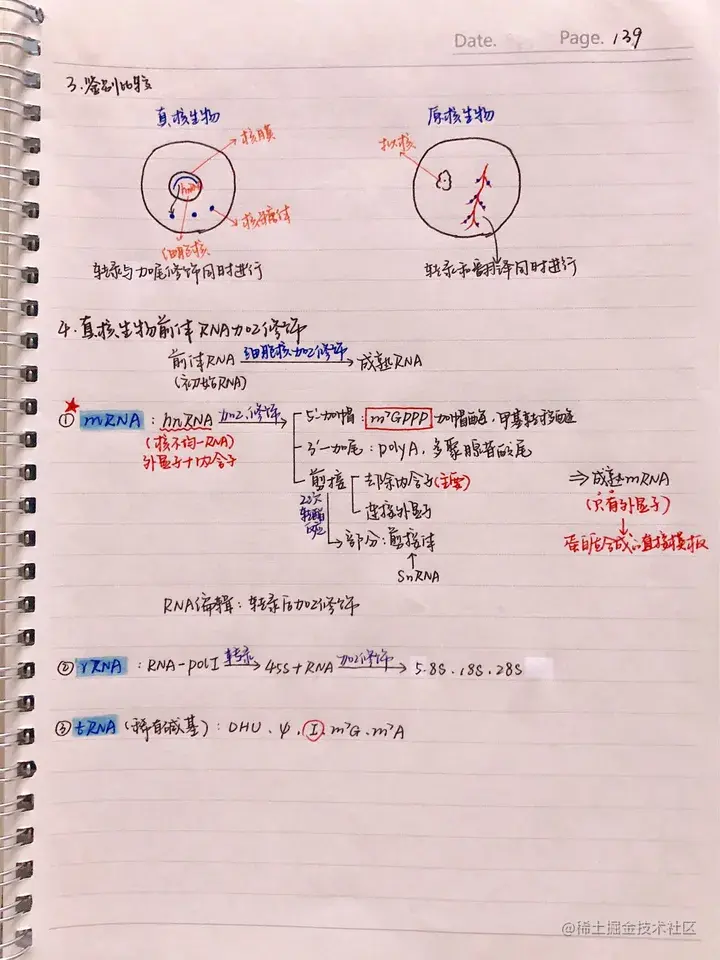 Date. Page. 139
3.鉴别比较
真核生物 原核生物
核膜 拟核
hnRNA
核糖体
细胞核
转录与加尾修饰同时进行 转录和翻译同时进行
4.真核生物前体RNA加工修饰
前体RNA 细胞核加工修饰 成熟RNA
(初始RNA)
① mRNA : hnRNA 加工修饰 5'-加帽: m⁷GPPP 加帽酶,甲基转移酶
(核不均一RNA)
外显子+内含子
3'-加尾: polyA, 多聚腺苷酸尾
剪接 去除内含子(主要) ⇒成熟mRNA
2次转酯反应 连接外显子 (只有外显子)
部分:剪接体 蛋白质合成的直接模板
SnRNA
RNA编辑: 转录后加工修饰
② rRNA : RNA-polI 转录 45S rRNA 加工修饰 5.8S、18S、28S
③ tRNA (稀有碱基): DHU、ψ、I、m⁷G、m⁷A
@稀土掘金技术社区